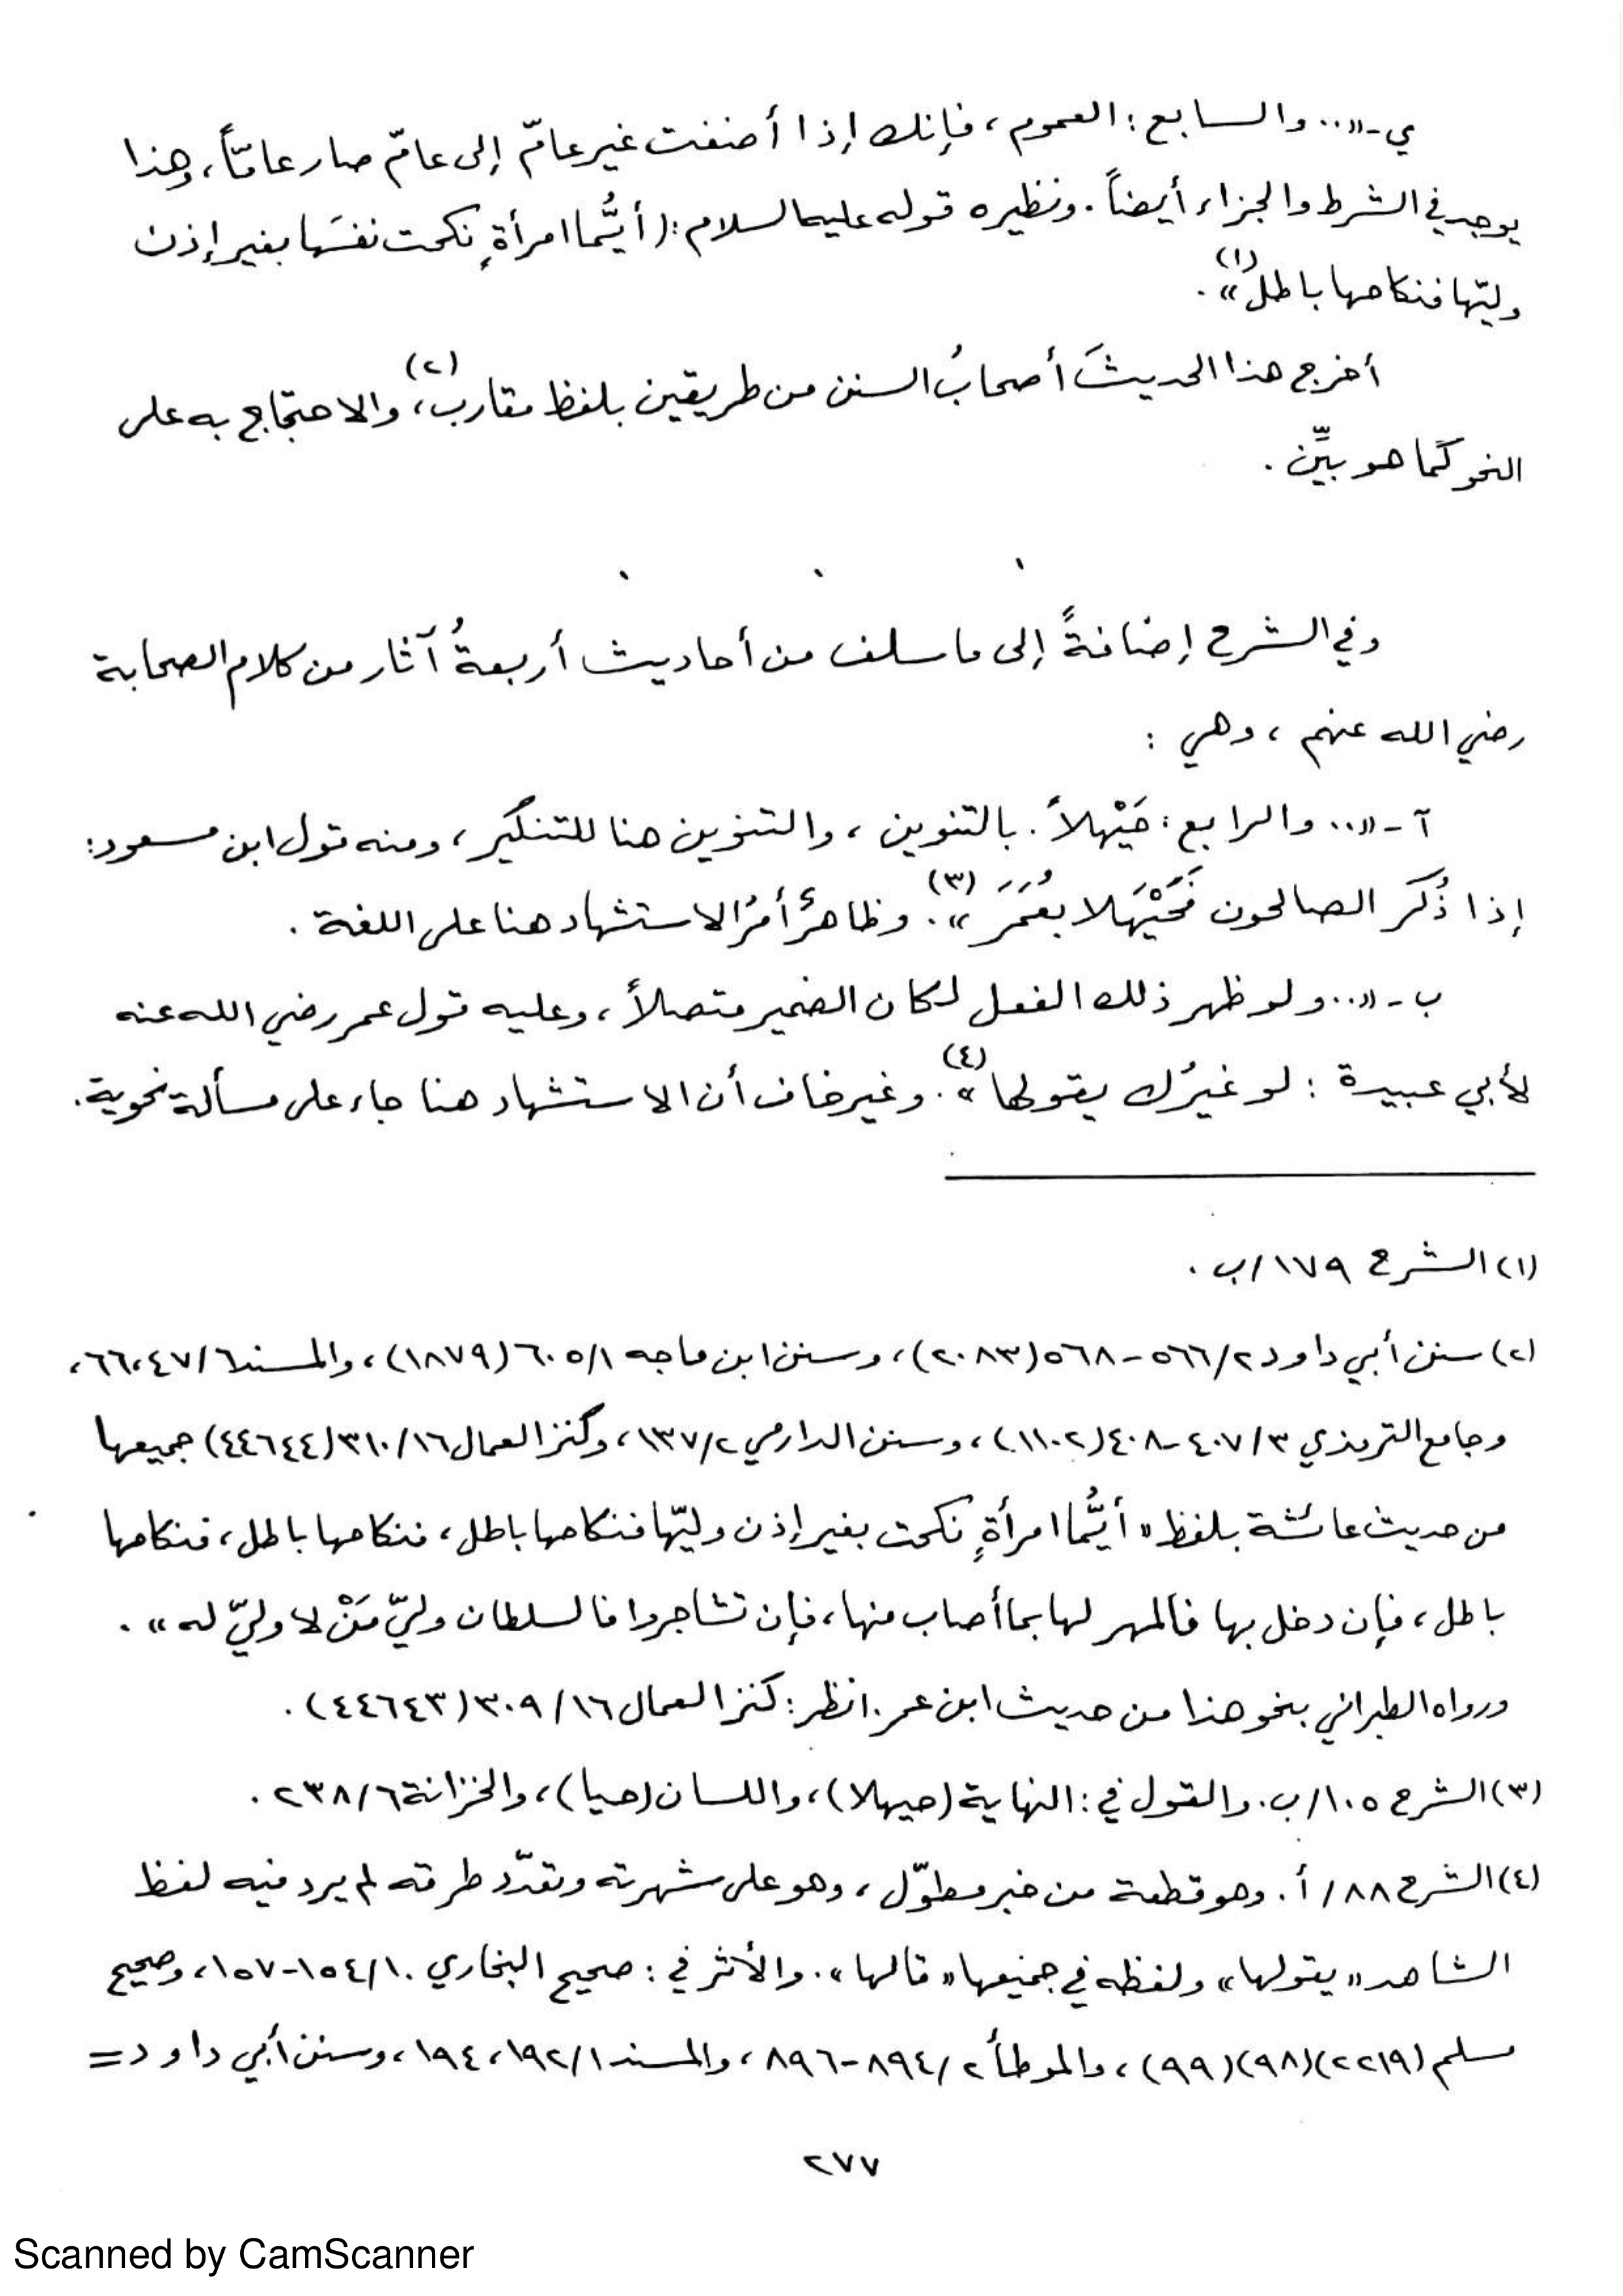 ي - «.. والسابع : العموم ، فإنك إذا أضفت غير عامّ إلى عامّ صار عامّاً ، وهذا
يوجد في الشرط والجزاء أيضاً . ونظيره قوله عليه السلام : (أيُّما امرأةٍ نكحت نفسَها بغير إذن
وليّها فنكاحها باطلٌ»(١) .
أخرج هذا الحديثَ أصحابُ السنن من طريقين بلفظ مقارب(٢)، والاحتجاج به على
النحو كما هو بيِّن .
وفي الشرح إضافةً إلى ما سلف من أحاديث أربعةُ آثار من كلام الصحابة
رضي الله عنهم ، وهي :
آ - «.. والرابع : حَيْهلاً . بالتنوين ، والتنوين هنا للتنكير ، ومنه قول ابن مسعود :
إذا ذُكر الصالحون فَحَيْهَلا بعُمَرَ »(٣). وظاهرٌ أمرُ الاستشهاد هنا على اللغة .
ب - «.. ولو ظهر ذلك الفعل لكان الضمير متصلاً ، وعليه قول عمر رضي الله عنه
لأبي عبيدة : لو غيرُك يقولها »(٤). وغير خاف أن الاستشهاد هنا جاء على مسألة نحوية .
(١) الشرح ١٧٩/ب .
(٢) سنن أبي داود ٥٦٦/٢-٥٦٨ (٢٠٨٣)، وسنن ابن ماجه ٦٠٥/١ (١٨٧٩)، والمسند ٤٧/٦، ٦٦،
وجامع الترمذي ٤٠٧/٣-٤٠٨ (١١٠٢)، وسنن الدارمي ١٣٧/٢، وكنز العمال ٣١٠/١٦ (٤٤٦٤٤) جميعها
من حديث عائشة بلفظ «أيُّما امرأةٍ نكحت بغير إذن وليّها فنكاحها باطل، فنكاحها باطل، فنكاحها
باطل، فإن دخل بها فالمهر لها بما أصاب منها، فإن تشاجروا فالسلطان وليّ مَنْ لا وليّ له» .
ورواه الطبراني بنحو هذا من حديث ابن عمر. انظر : كنز العمال ٣٠٩/١٦ (٤٤٦٤٣) .
(٣) الشرح ١٠٥/ب. والقول في : النهاية (حيهلا)، واللسان (حيا)، والخزانة ٢٣٨/٦ .
(٤) الشرح ٨٨/أ . وهو قطعة من خبر مطوّل ، وهو على شهرته وتعدّد طرقه لم يرد فيه لفظ
الشاهد «يقولها» ولفظه في جميعها «قالها». والأثر في : صحيح البخاري ١٥٤/١٠-١٥٧، وصحيح
مسلم (٢٢١٩)(٩٨)(٩٩)، والموطأ ٨٩٤/٢-٨٩٦، والمسند ١٩٢/١، ١٩٤، وسنن أبي داود =
٢٧٧
Scanned by CamScanner